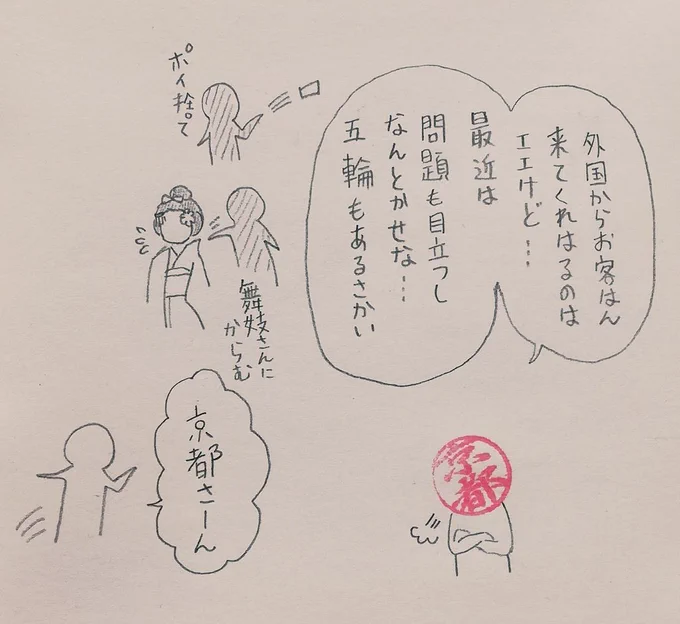 外国からお客はん
来てくれはるのは
エエけど…
最近は
問題も目立つし
なんとかせな…
五輪もあるさかい
ポイ捨て
舞妓さんに
からむ
京都さーん
京都